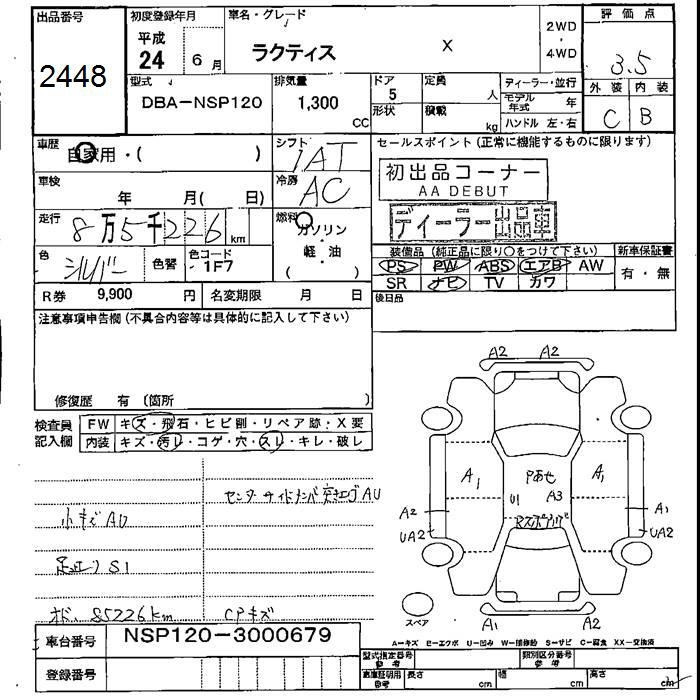 出品番号 初度登録年月 車名・グレード 2WD 評価点
平成 ラクティス X
24 6月 4WD 3.5
2448
型式 排気量 ドア 定員 ディーラー・並行 外装 内装
DBA-NSP120 1,300 CC 5 人 モデル年式 年 C B
形状 積載 kg ハンドル 左・右
車歴 自家用・( ) シフト IAT セールスポイント(正常に機能するものに限ります)
車検 年 月( 日) 冷房 AC 初出品コーナー
AA DEBUT
走行 8万5千226km 燃料 ガソリン ディーラー出品車
軽・油
( )
色 シルバー 色替 色コード 1F7 装備品(純正品に限り○をつけて下さい) 新車保証書
PS PW ABS エアB AW 有・無
SR ナビ TV カワ
R券 9,900円 名変期限 月 日 後日品
注意事項申告欄(不具合内容等は具体的に記入して下さい)
修復歴 有(箇所 )
検査員記入欄 FW キズ・飛石・ヒビ割・リペア跡・X要
内装 キズ・汚レ・コゲ・穴・スレ・キレ・破レ
A2 A2
A1 Pあせ A1
U1 A3
A2 A1
UA2 UA2
センターサイドメンバ突き上げAU
小キズAU
S1
85226km CPキズ
スペア A1 A2
A-キズ E-エクボ U-凹み W-補修跡 S-サビ C-腐食 XX-交換済
車台番号 NSP120-3000679
型式指定番号 参考 類別区分番号 参考
登録番号 車庫証明用 参考 長さ cm 幅 cm 高さ cm